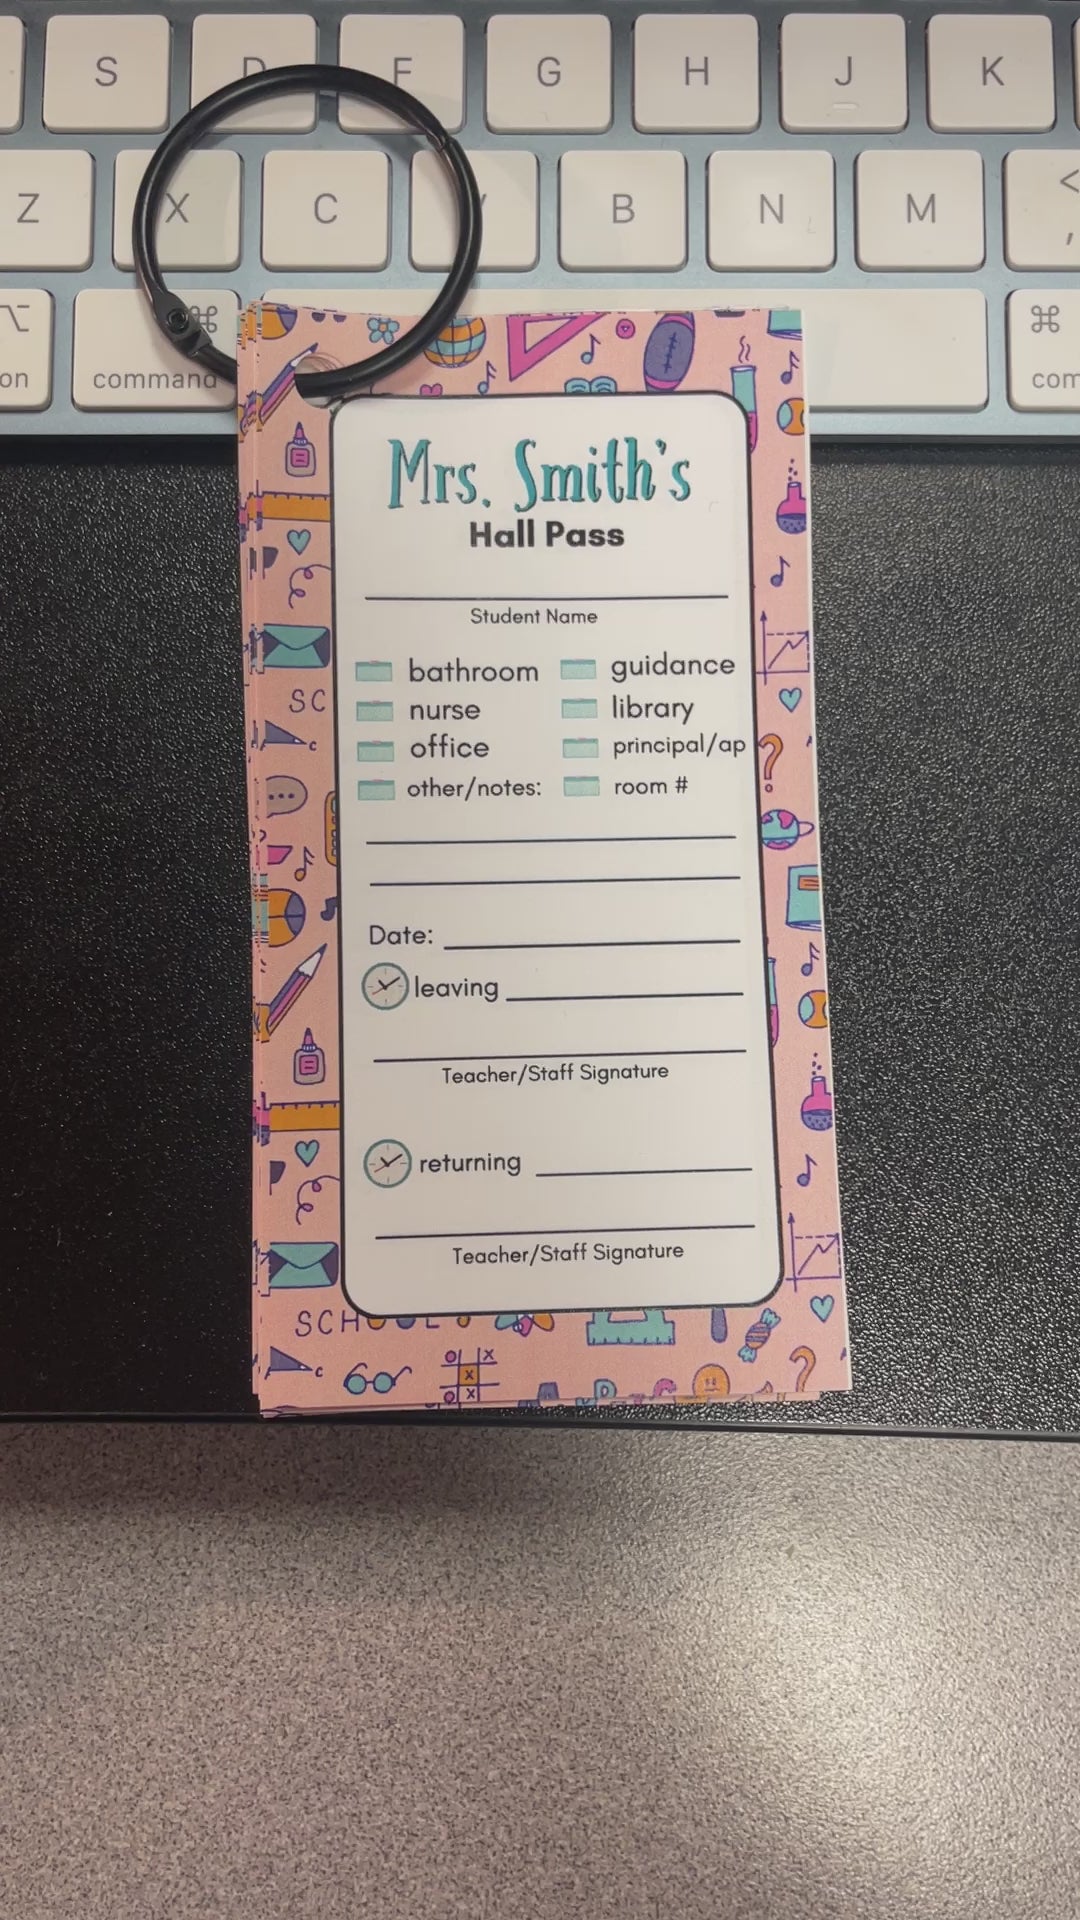 S D F G H J K
Z X C V B N M <
,
⌥ ⌘ ⌘
on command com
Mrs. Smith's
Hall Pass
Student Name
bathroom guidance
nurse library
office principal/ap
other/notes: room #
Date:
leaving
Teacher/Staff Signature
returning
Teacher/Staff Signature
SC
SCHOOL